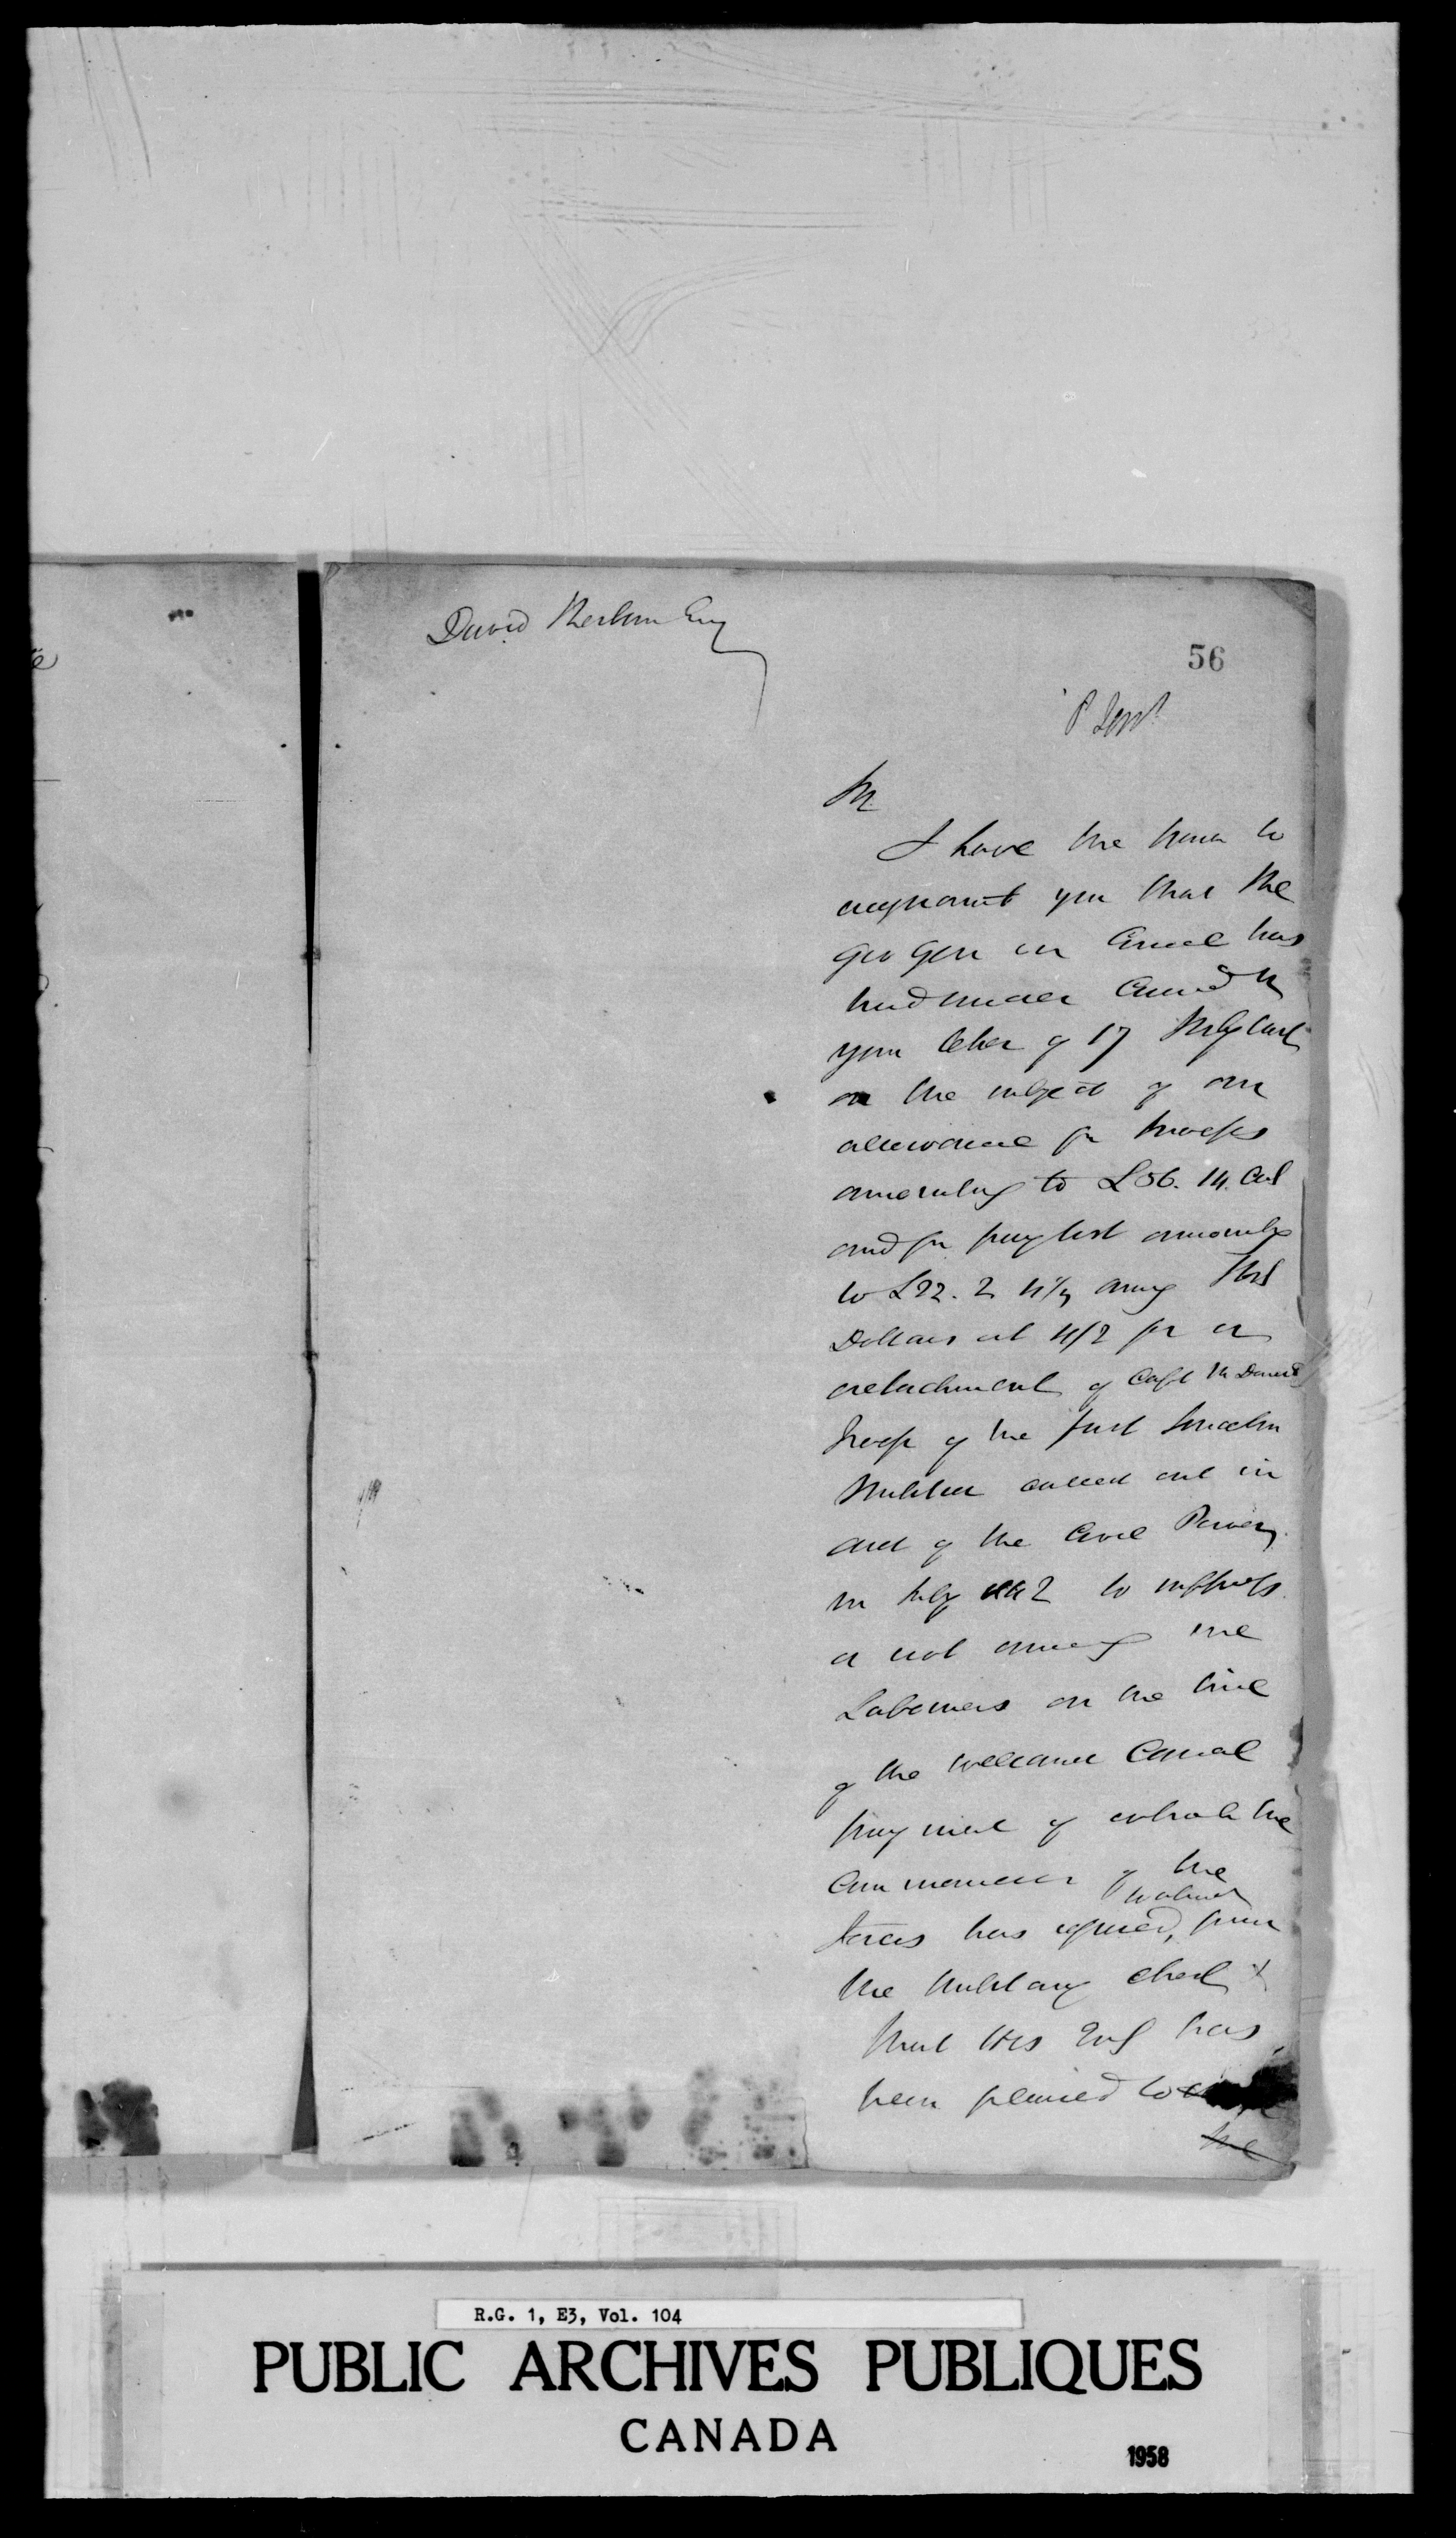 David Thorburn Esq
56
Sir
I have the honor to
acquaint you that the
Gov Gen in Council has
had under Consid n
your letter of 17 July last
on the subject of an
allowance for
amounting to £56. 14. Cur
and for pay list amounting
to £22. 2
Dollars at 4/2 for a
detachment of Capt
Troop of the first Lincoln
Militia called out in
aid of the Civil Power
in July 1842 to suppress
a riot among the
Laborers on the line
of the Welland Canal
payment of which the
Commander of the
forces has refused,
the Military chest &
that His Exy has
been pleased to
the
R.G. 1, E3, Vol. 104
PUBLIC ARCHIVES PUBLIQUES
CANADA
1958